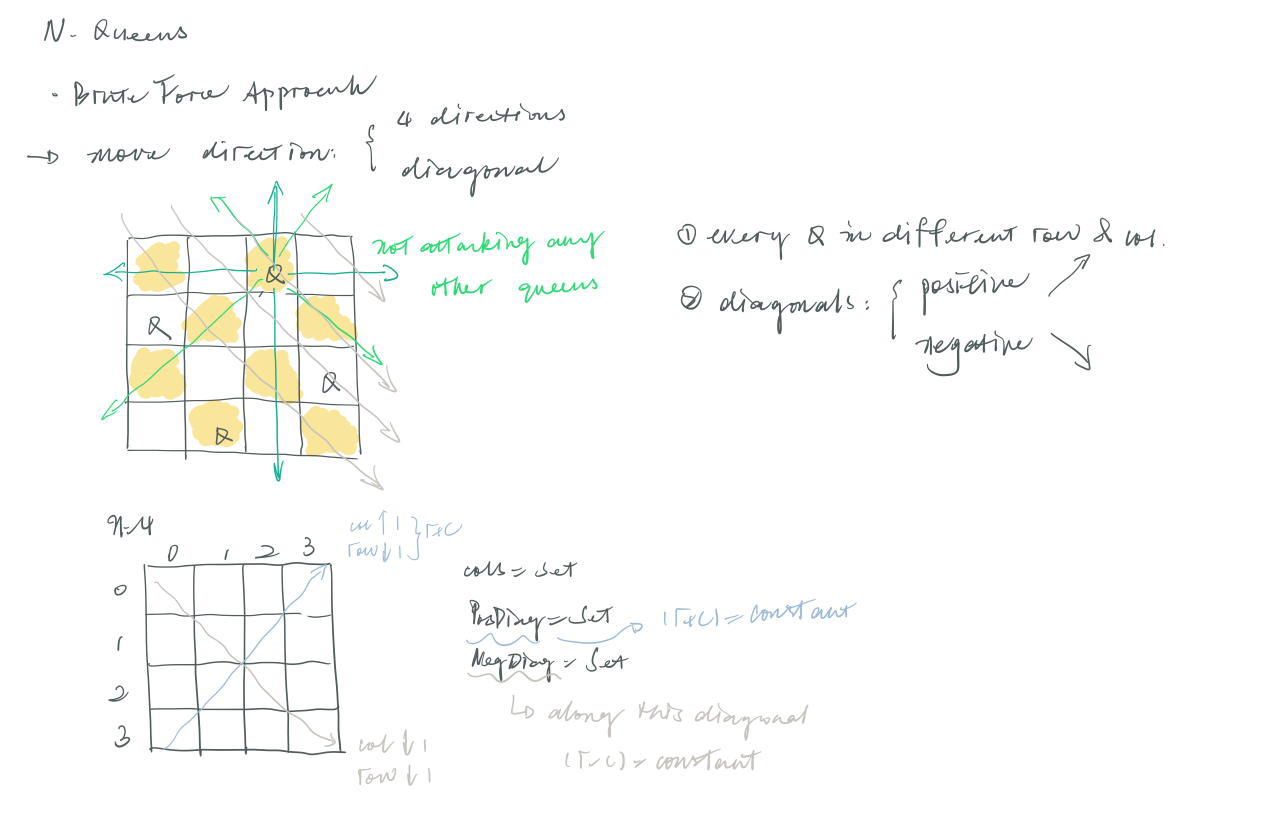 N- Queens
· Brute Force Approach
→ move direction: { 4 directions
diagonal
not attacking any
other queens
Q
Q
Q
Q
① every Q in different row & col.
② diagonals: { positive ↗
negative ↘
N=4
col ↑ 1
row ↓ 1 } r+c
0 1 2 3
0
1
2
3
cols = set
PosDiag = Set → (r+c) = constant
NegDiag = Set
↳ along this diagonal
(r-c) = constant
col ↓ 1
row ↓ 1